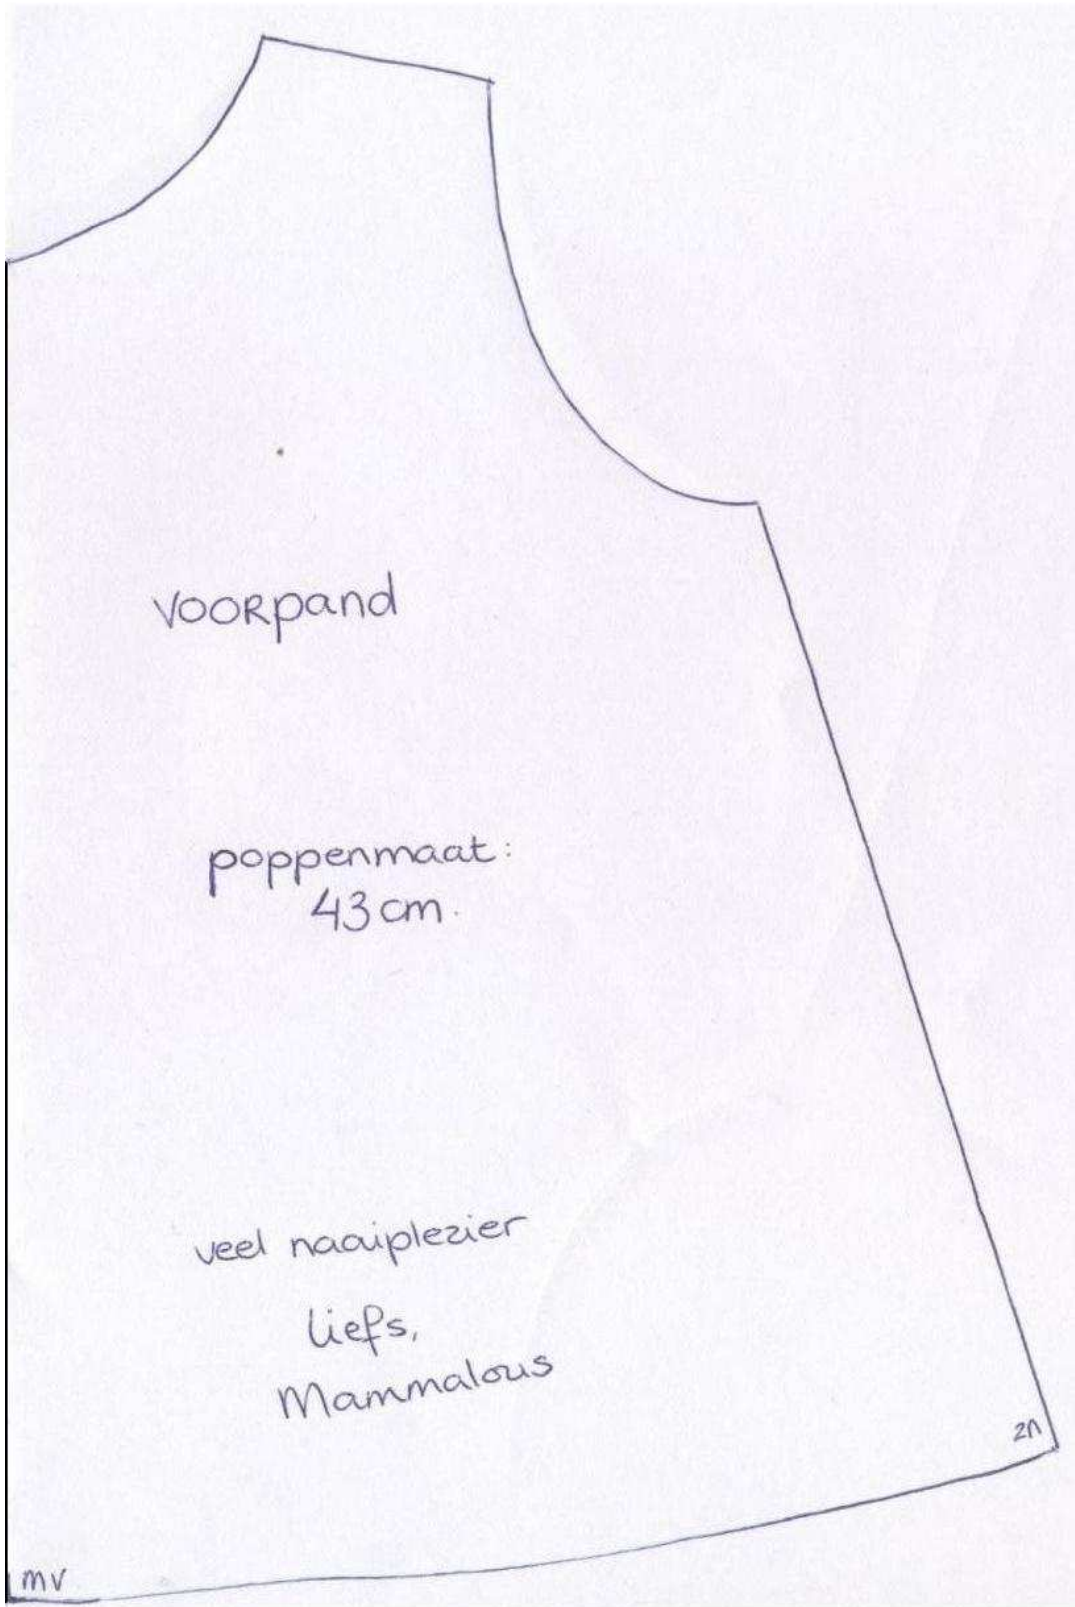 voorpand
poppenmaat:
43 cm.
veel naaiplezier
liefs,
Mammalous
zn
mv